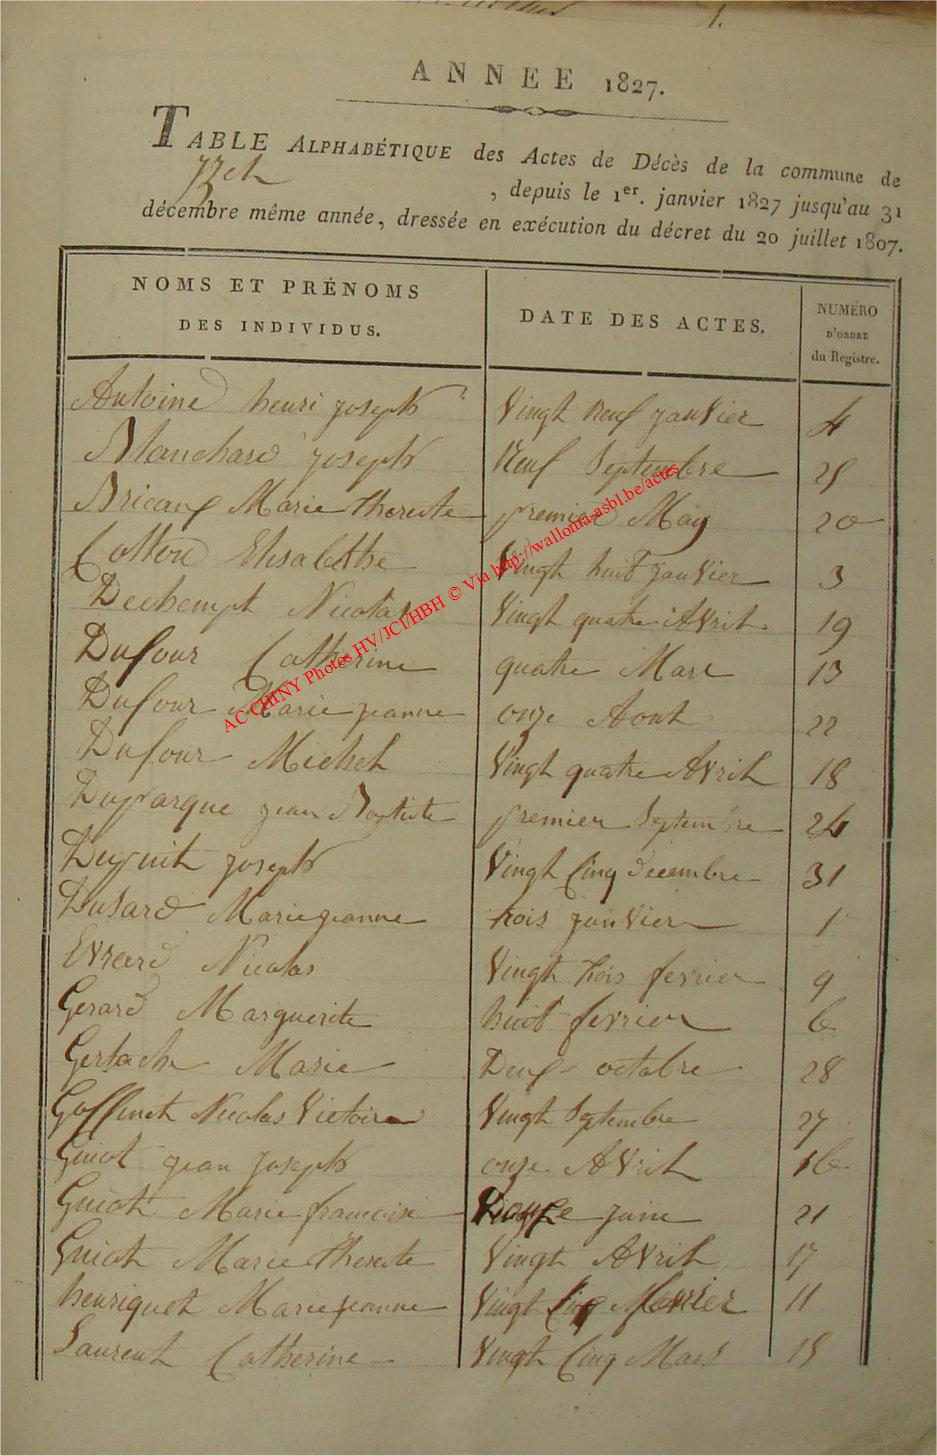 1.
ANNEE 1827.
TABLE ALPHABÉTIQUE des Actes de Décès de la commune de
Izel, depuis le 1er. janvier 1827 jusqu'au 31
décembre même année, dressée en exécution du décret du 20 juillet 1807.
NOMS ET PRÉNOMS
DES INDIVIDUS.
DATE DES ACTES.
NUMÉRO
D'ORDRE
du Registre.
Antoine henri joseph Vingt neuf janvier 4
Blanchard joseph Neuf Septembre 25
Bricaux Marie thereste premier May 20
Cotton Elisabethe Vingt huit janvier 3
Dechempt Nicolas Vingt quatre Avril 19
Dufour Catherine quatre Mars 13
Dufour Marie jeanne onze Aout 22
Dufour Michel Vingt quatre Avril 18
Duparque jean Baptiste premier Septembre 24
Dupuit joseph Vingt Cinq decembre 31
Dusard Marie jeanne trois janvier 1
Evrard Nicolas Vingt trois fevrier 9
Gerard Marguerite huit fevrier 6
Gerlache Marie Deux octobre 28
Goffinet Nicolas Victoire Vingt Septembre 27
Guiot jean joseph onze Avril 16
Guiot Marie francoise Douze juin 21
Guiot Marie thereste Vingt Avril 17
henriquet Marie jeanne Vingt Cinq fevrier 11
Laurent Catherine Vingt Cinq Mars 15
AC CHINY Photos HV/JCI/HBH © Via http://wallonia-asbl.be/actes